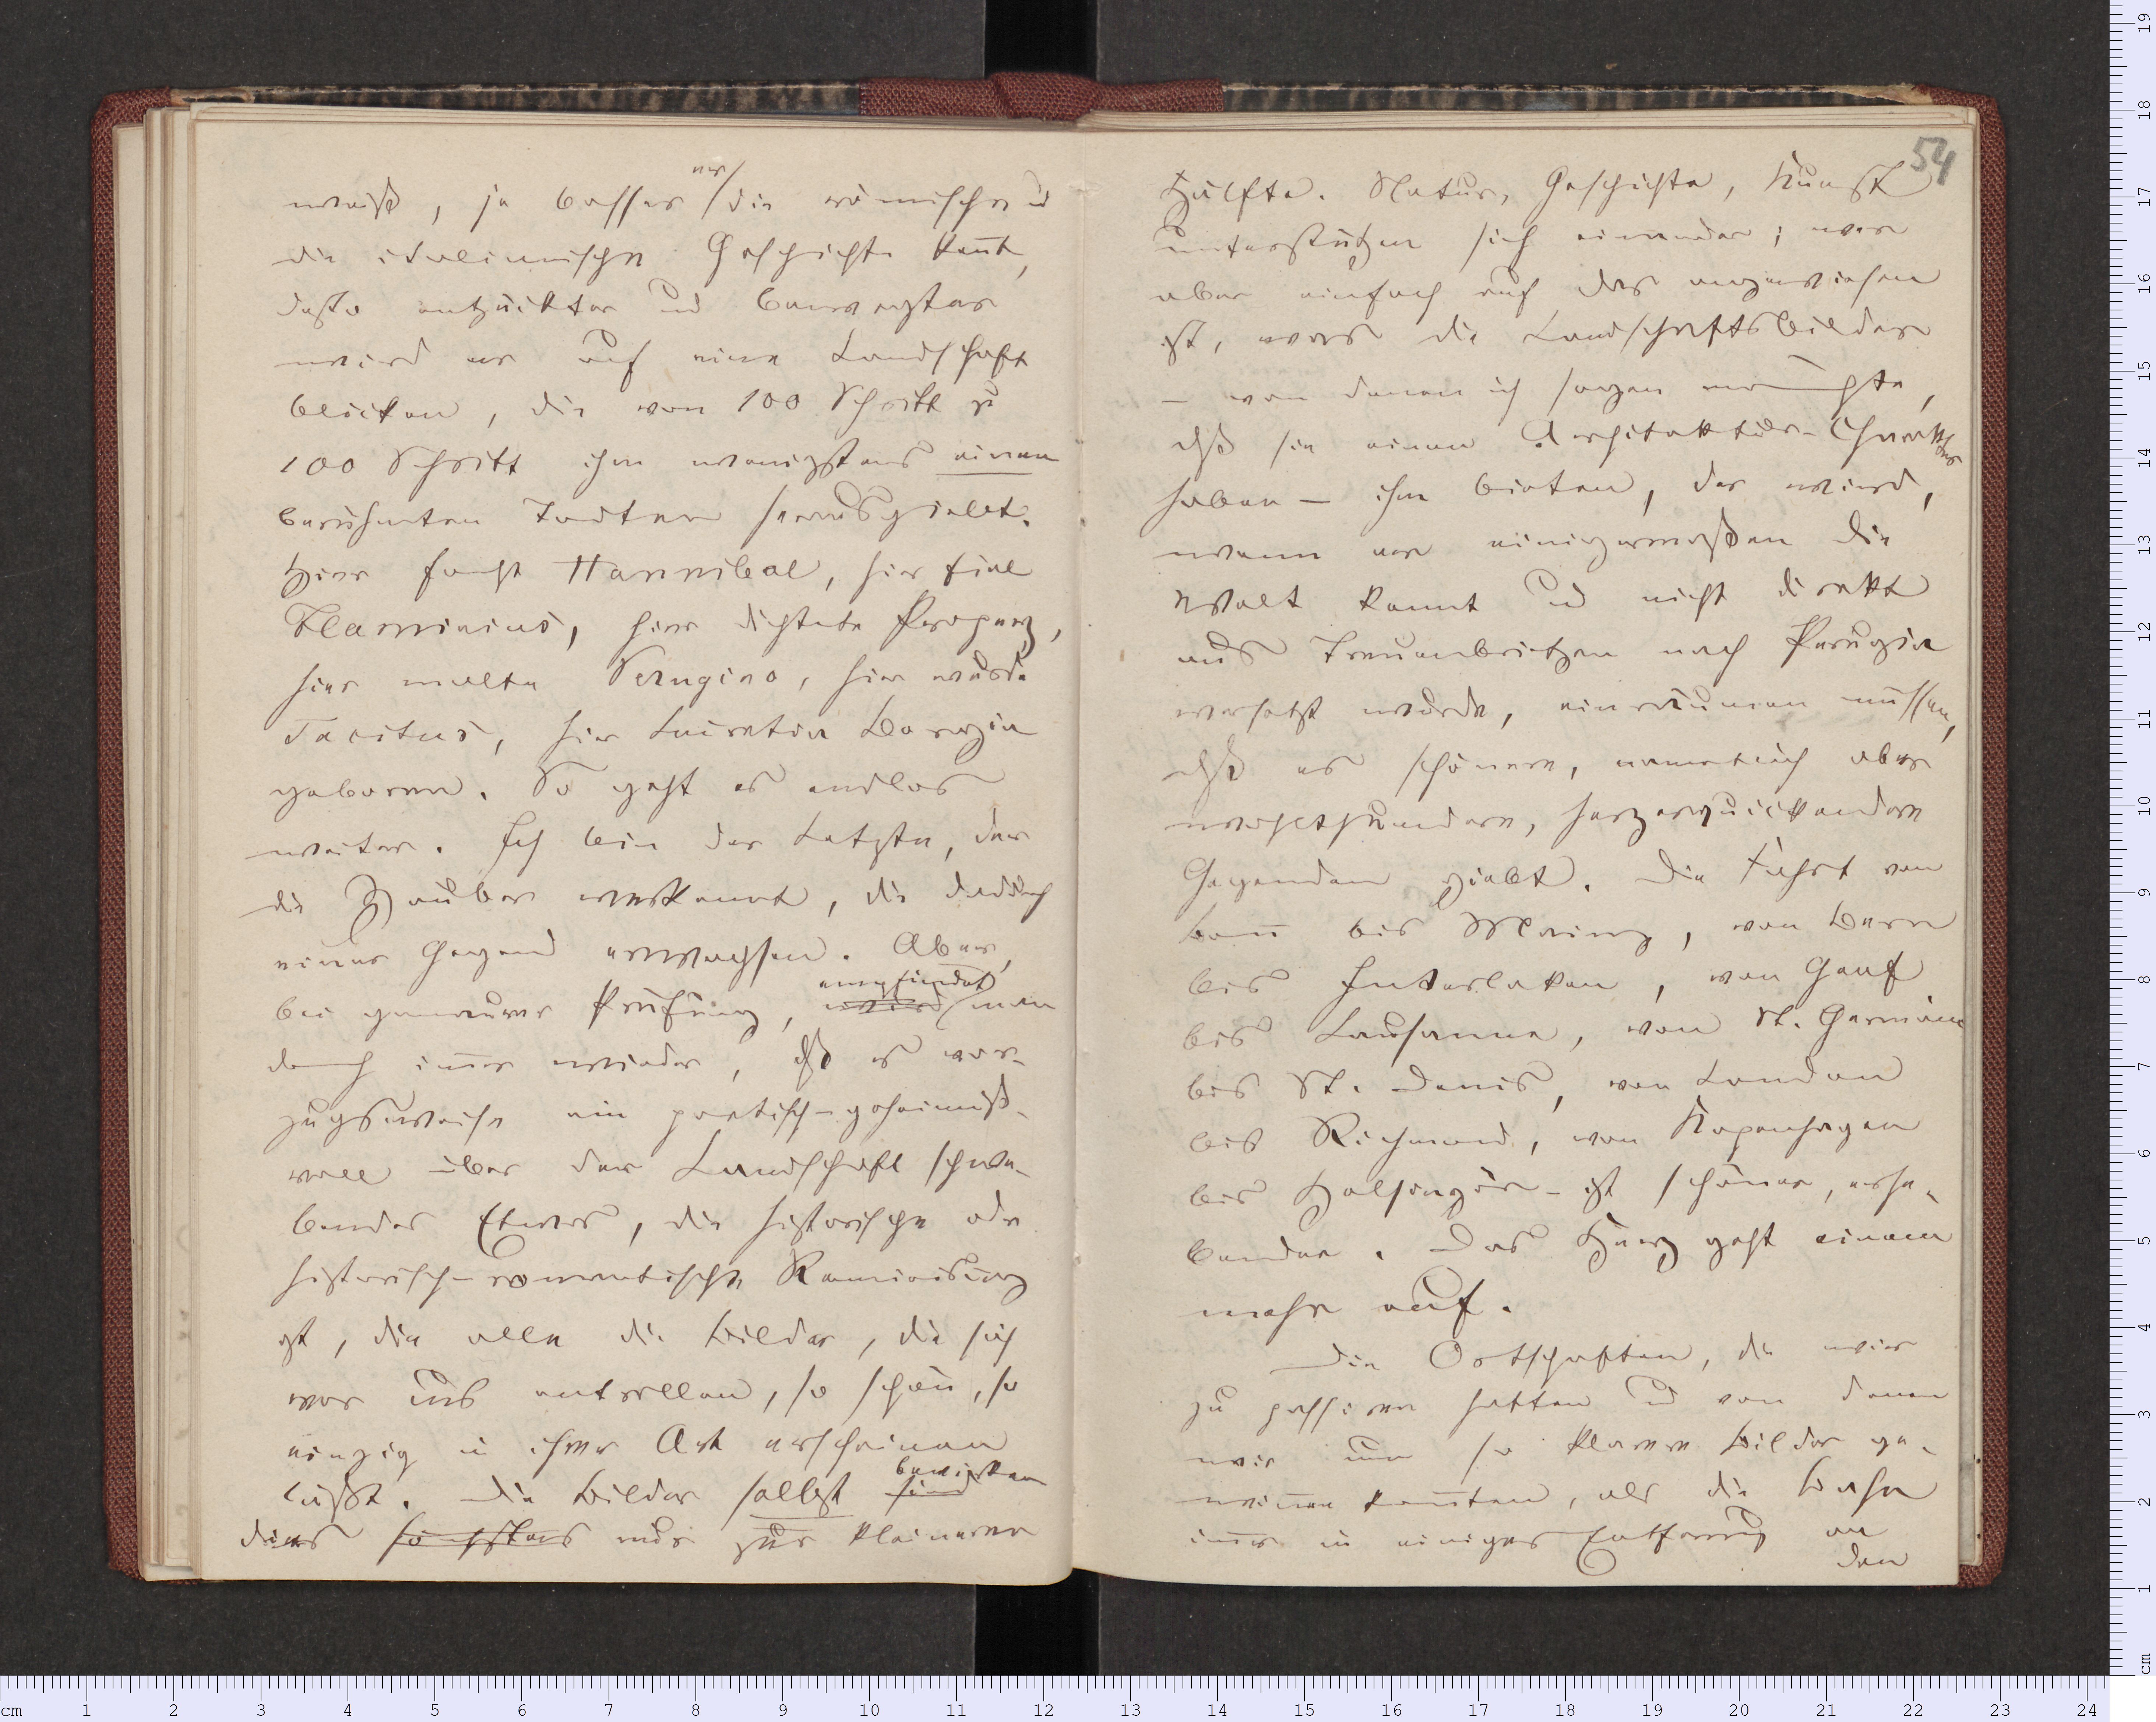 weiß, je besser er die römische u
die italienische Geschichte kennt,
desto entzückter und bewegter
wird er auf eine Landschaft
blicken, die von 100 Schritt zu
100 Schritt ihm wenigstens einen
berühmten Todten herausgiebt.
Hier focht Hannibal, hier fiel
Flaminius, hier dichtete Properz,
hier malte Perugino, hier wurde
Tacitus, hier Lucretia Borgia
geboren. So geht es endlos
weiter. Ich bin der Letzte, der
die Zauber verkennt, die dadurch
einer Gegend erwachsen. Aber,
bei genauer Prüfung, wird empfindet man
doch immer wieder, daß es vor-
zugsweise ein poetisch-geheimniß-
voll über der Landschaft schwe-
bendes Etwas, die historische oder
historisch-romantische Reminiscenz
ist, die alle die Bilder, die sich
vor uns entrollen, so schön, so
einzig in ihrer Art erscheinen
läßt. Die Bilder selbst sind bewirken
dies höchstens nur zur kleineren
54
Hälfte. Natur, Geschichte, Kunst
unterstützen sich einander; wer
aber einfach auf das angewiesen
ist, was die Landschaftsbilder
– von denen ich sagen möchte,
daß sie einen Architektur-Charakter
haben – ihm bieten, der wird,
wenn er einigermaßen die
Welt kennt und nicht direkt
aus Treuenbritzen nach Perugia
versetzt wurde, einräumen müssen,
daß es schönere, namentlich aber
wohlthuendere, herzerquickendere
Gegenden giebt. Die Fahrt von
Bonn bis Mainz, von Bern
bis Interlaken, von Genf
bis Lausanne, von St. Germain
bis St. Denis, von London
bis Richmond, von Kopenhagen
bis Helsingör – ist schöner, erhe-
bender. Das Herz geht einem
mehr auf.
Die Ortschaften, die wir
zu passiren hatten und von denen
wir um so klarere Bilder ge-
winnen konnten, als die Bahn
immer in einiger Entfernung an
den